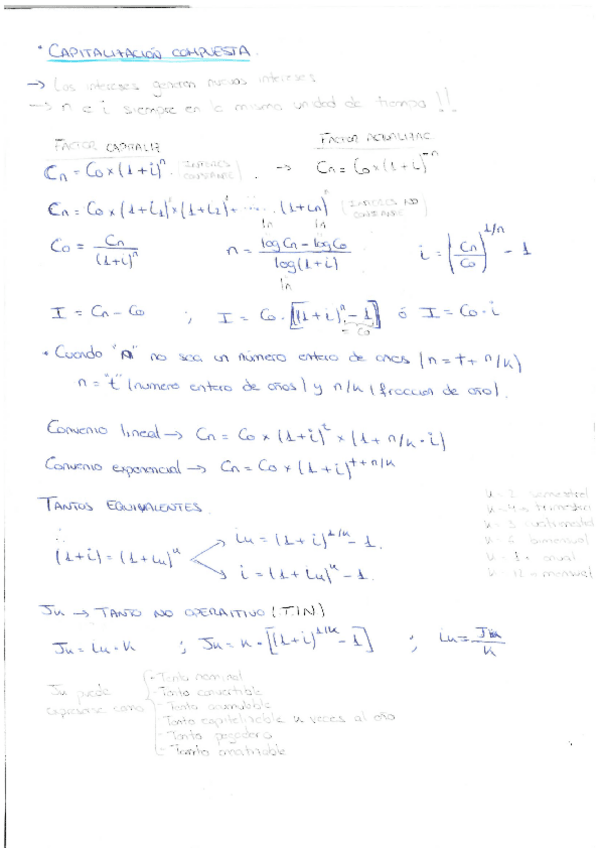 · CAPITALITACIÓN COMPUESTA.
→ Los intereses generan nuevos intereses
→ n e i siempre en la misma unidad de tiempo!!
FACTOR CAPITALIZ
FACTOR ACTUALIZAC
Cn = Co x (1+i)^n. (INTERÉS CONSTANTE). → Cn = Co x (1+i)^-n
Cn = Co x (1+i1)^1 x (1+i2)^1 + ..... (1+in)^n (INTERÉS NO CONSTANTE)
Co = Cn / (1+i)^n
ln ln
n = log Cn - log Co / log (1+i)
ln
i = (Cn / Co)^1/n - 1
I = Cn - Co ; I = Co · [(1+i)^n - 1] ó I = Co · i
= Co
· Cuando "n" no sea un número entero de años (n = t + n/k)
n = "t" (numero entero de años) y n/k (fraccion de año).
Convenio lineal → Cn = Co x (1+i)^t x (1 + n/k · i)
Convenio exponencial → Cn = Co x (1+i)^t + n/k
TANTOS EQUIVALENTES.
k = 2 semestral
k = 4 = trimestral
k = 3 cuatrimestral
k = 6 bimensual
k = 1 = anual
k = 12 = mensual
(1+i) = (1+ik)^k
ik = (1+i)^1/k - 1.
i = (1+ik)^k - 1.
Jk → TANTO NO OPERAITIVO (T.I.N)
Jk = ik · k ; Jk = k · [(1+i)^1/k - 1] ; ik = Jk / k
Jk puede expresarse como
- Tanto nominal
- Tanto convertible
- Tanto acumulable
Tanto capitalizable k veces al año
- Tanto pagadero
- Tanto